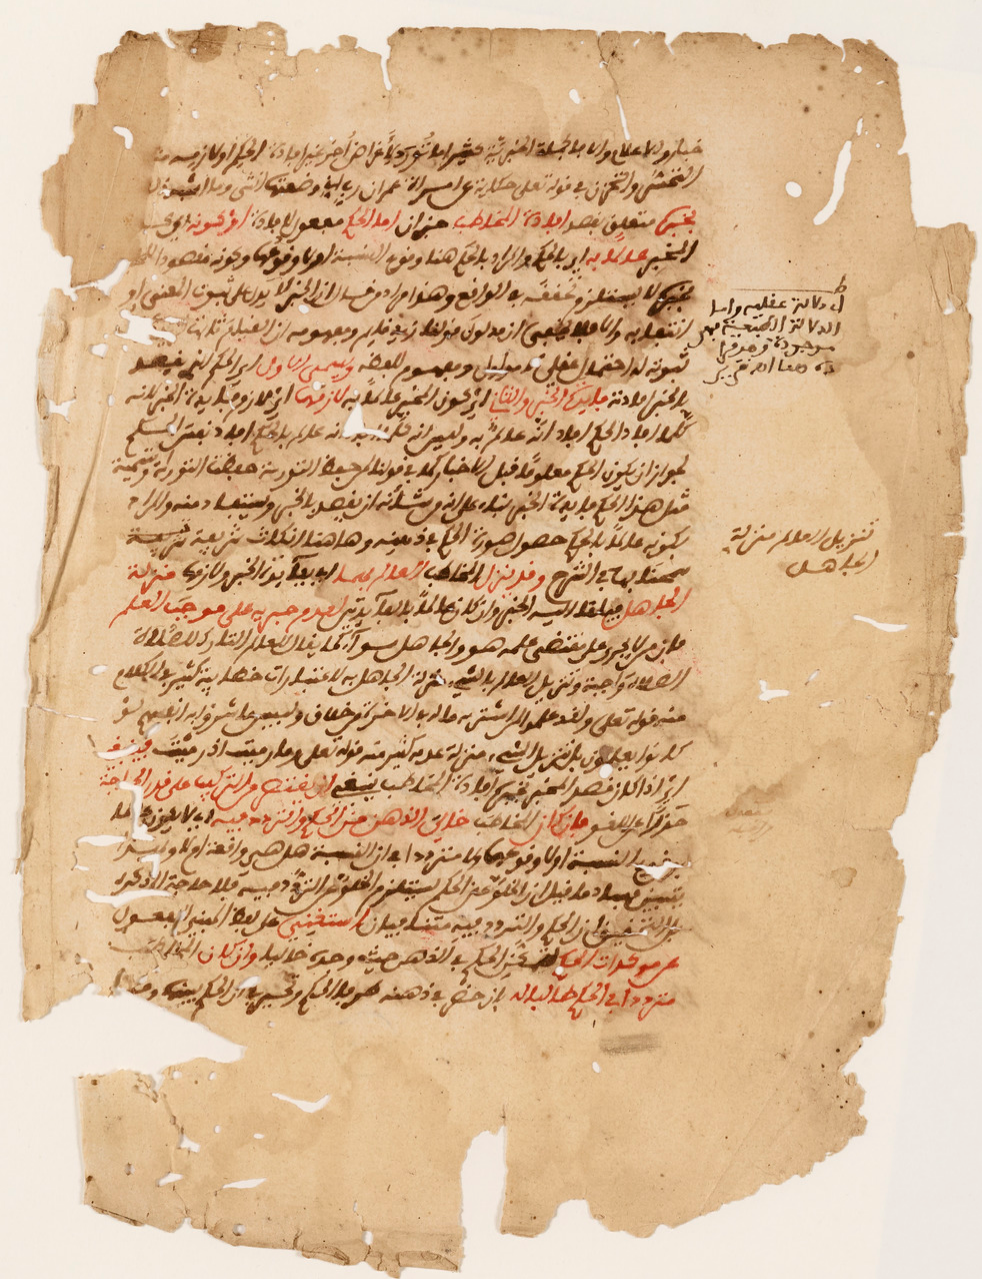 خبار والاعلام والا فالجملة الخبرية كثيرا ما تورد لأغراض أخر غير افادة الحكم او لازمه
التحسر والتحزن في قوله تعلى حكاية عن امراة عمران رب اني وضعتها انثى وما اشبه
بخبره متعلق بقصد افادة المخاطب خبر ان اما الحكم مفعول الافادة او كونه اي
المخبر عالما به اي بالحكم والمراد بالحكم هنا وقوع النسبة او لا وقوعها وكونه مقصودا
بخبره لا يستلزم تحققه في الواقع وهذا مراد من قال ان الخبر لا يدل على ثبوت المعنى او
انتفائه والا فلا يخفى ان مدلول قولنا زيد قايم ومفهومه ان القيام ثابت
ثبوته له احتمال عقلي لا مدلول ومفهوم للفظ ويسمى الاول اي الحكم الذي يقصد
بالخبر افادته فايدة الخبر والثاني اي كون المخبر عالما به لازمها اي لازم فايدة الخبر لانه
كلما افاد الحكم افاد انه عالم به وليس انه عالم بالحكم افاد نفس الحكم
لجواز ان يكون الحكم معلوما قبل الاخبار كما في قولنا لمن حفظ التورية حفظت التورية وتسمية
مثل هذا الحكم فايدة الخبر بناء على انه من شأنه ان يقصد بالخبر ويستفاد منه والمراد
بكونه عالما بالحكم حصول صورة الحكم في ذهنه وهاهنا شريفة
سمحنا بها في الشرح وقد ينزل المخاطب العالم بهما اي بفايدة الخبر ولازمها منزلة
الجاهل فيلقا اليه الخبر وان كان عالما بالفايدتين لعدم جريه على موجب العلم
فان من لا يجري على مقتضى علمه هو والجاهل سواء كما يقال للعالم التارك للصلاة
الصلاة واجبة وتنزيل العالم بالشيء منزلة الجاهل به لاعتبارات خطابية كثير في الكلام
منه قوله تعلى ولقد علموا لمن اشتريه ماله في الاخرة من خلاق ولبيس ما شروا به انفسهم لو
كانوا يعلمون بل تنزيل الشيء منزلة عدمه كثير منه قوله تعلى وما رميت اذ رميت فينبغي
اي اذا كان قصد المخبر بخبره افادة المخاطب ينبغي ان يقتصر من التركيب على قدر الحاجة
حذرا عن اللغو فان كان المخاطب خالي الذهن من الحكم والتردد فيه اي لا يكون عالما
بوقوع النسبة او لا وقوعها ولا مترددا في ان النسبة هل هي واقعة ام لا
يتبين فساد ما قيل ان الخلو عن الحكم يستلزم الخلو عن التردد فيه فلا حاجة الى ذكره
بل التحقيق ان الحكم والتردد فيه متنافيان استغني على لفظ المبني للمفعول
عن موكدات الحكم لتمكن الحكم في الذهن حيث وجده خاليا وان كان المخاطب
مترددا في الحكم طالبا له بان حضر في ذهنه طرفا الحكم وتحير في ان الحكم بينهما
اي دلالة عقلية واما
الدلالة الوضعية فهي
موجودة
تنزيل العالم منزلة
الجاهل